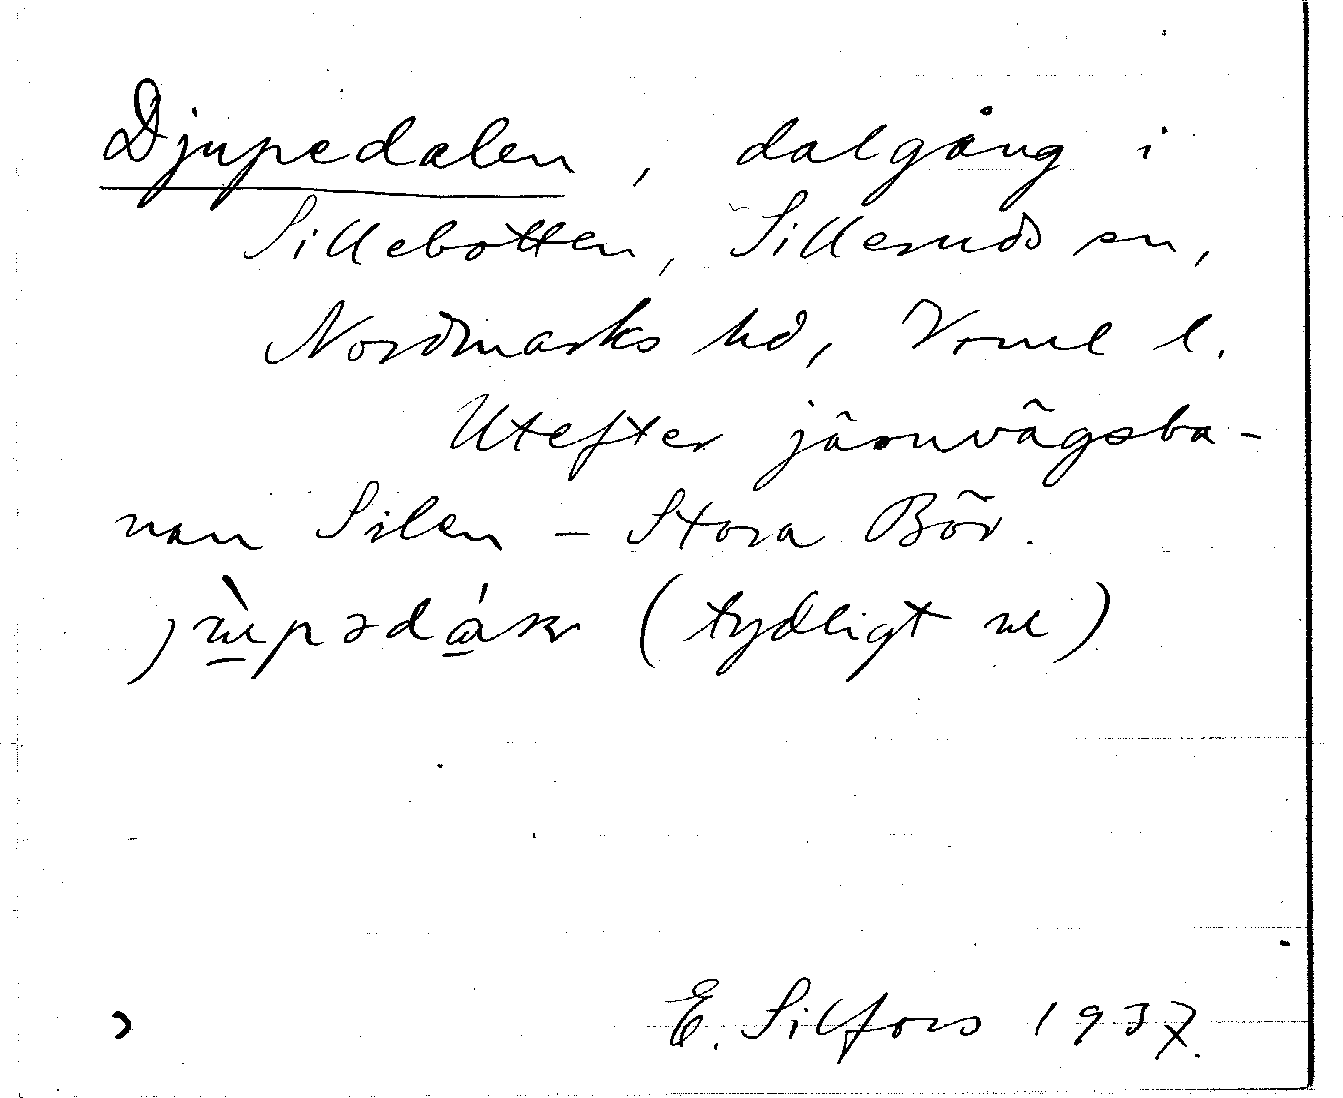 Djupedalen, dalgång i
Sillebotten, Silleruds sn,
Nordmarks hd, Vrml l.
Utefter järnvägsba-
nan Silen - Stora Bör.
(tydligt ɯ)
E. Silfors 1937.